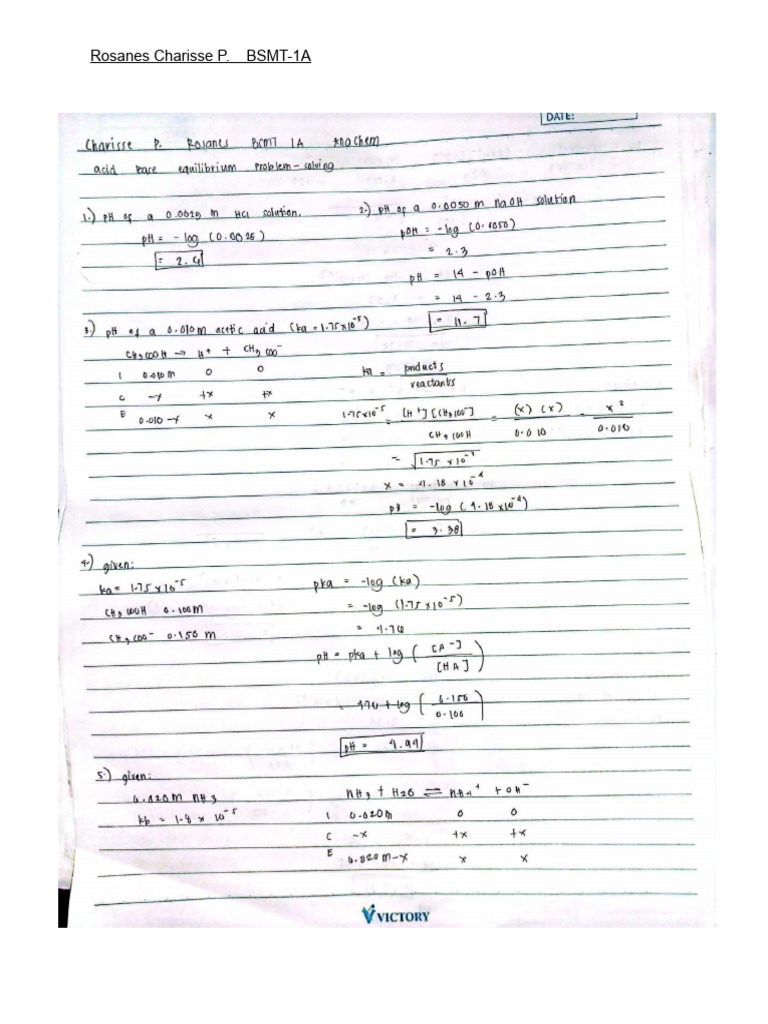 Rosanes Charisse P. BSMT-1A
DATE:
Charisse P. Rosanes BSMT 1A AnaChem
acid base equilibrium problem-solving
1.) pH of a 0.0025 m HCl solution.
pH = -log (0.0025)
= 2.6
2.) pH of a 0.0050 m NaOH solution
pOH = -log (0.0050)
= 2.3
pH = 14 - pOH
= 14 - 2.3
= 11.7
3.) pH of a 0.010 m acetic acid (ka = 1.75x10⁻⁵)
CH₃COOH → H⁺ + CH₃COO⁻
I 0.010 m 0 0
C -x +x +x
E 0.010-x x x
ka = products / reactants
1.75x10⁻⁵ = [H⁺][CH₃COO⁻] / CH₃COOH = (x)(x) / 0.010 = x² / 0.010
= √1.75 x10⁻⁷
x = 4.18 x 10⁻⁴
pH = -log (4.18 x10⁻⁴)
= 3.38
4.) given:
ka = 1.75x10⁻⁵
CH₃COOH 0.100m
CH₃COO⁻ 0.150 m
pka = -log (ka)
= -log (1.75x10⁻⁵)
= 4.76
pH = pka + log ([A⁻] / [HA])
= 4.76 + log (0.150 / 0.100)
pH = 4.94
5.) given:
0.020 m NH₃
kb = 1.8 x 10⁻⁵
NH₃ + H2O ⇌ NH₄⁺ + OH⁻
I 0.020m 0 0
C -x +x +x
E 0.020m-x x x
VICTORY